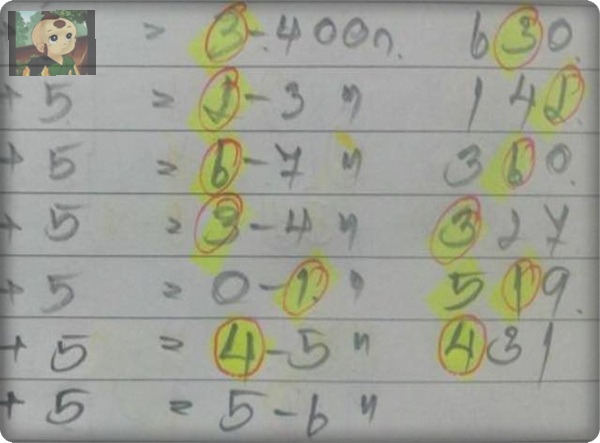 = 3-400n. 630.
+ 5 = 1-3 n 141.
+ 5 = 6-7 n 360.
+ 5 = 3-4 n 327
+ 5 = 0-1 n 519.
+ 5 = 4-5 n 431
+ 5 = 5-6 n